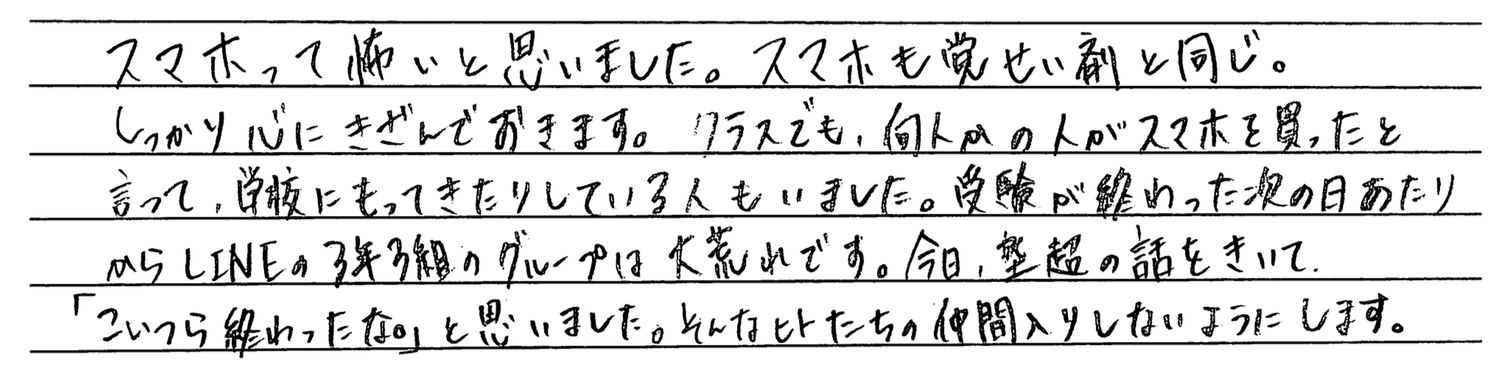 スマホって怖いと思いました。スマホも覚せい剤と同じ。
しっかり心にきざんでおきます。クラスでも、何人かの人がスマホを買ったと
言って、学校にもってきたりしている人もいました。受験が終わった次の日あたり
からLINEの3年3組のグループは大荒れです。今日、塾超の話をきいて、
「こいつら終わったな。」と思いました。そんなヒトたちの仲間入りしないようにします。